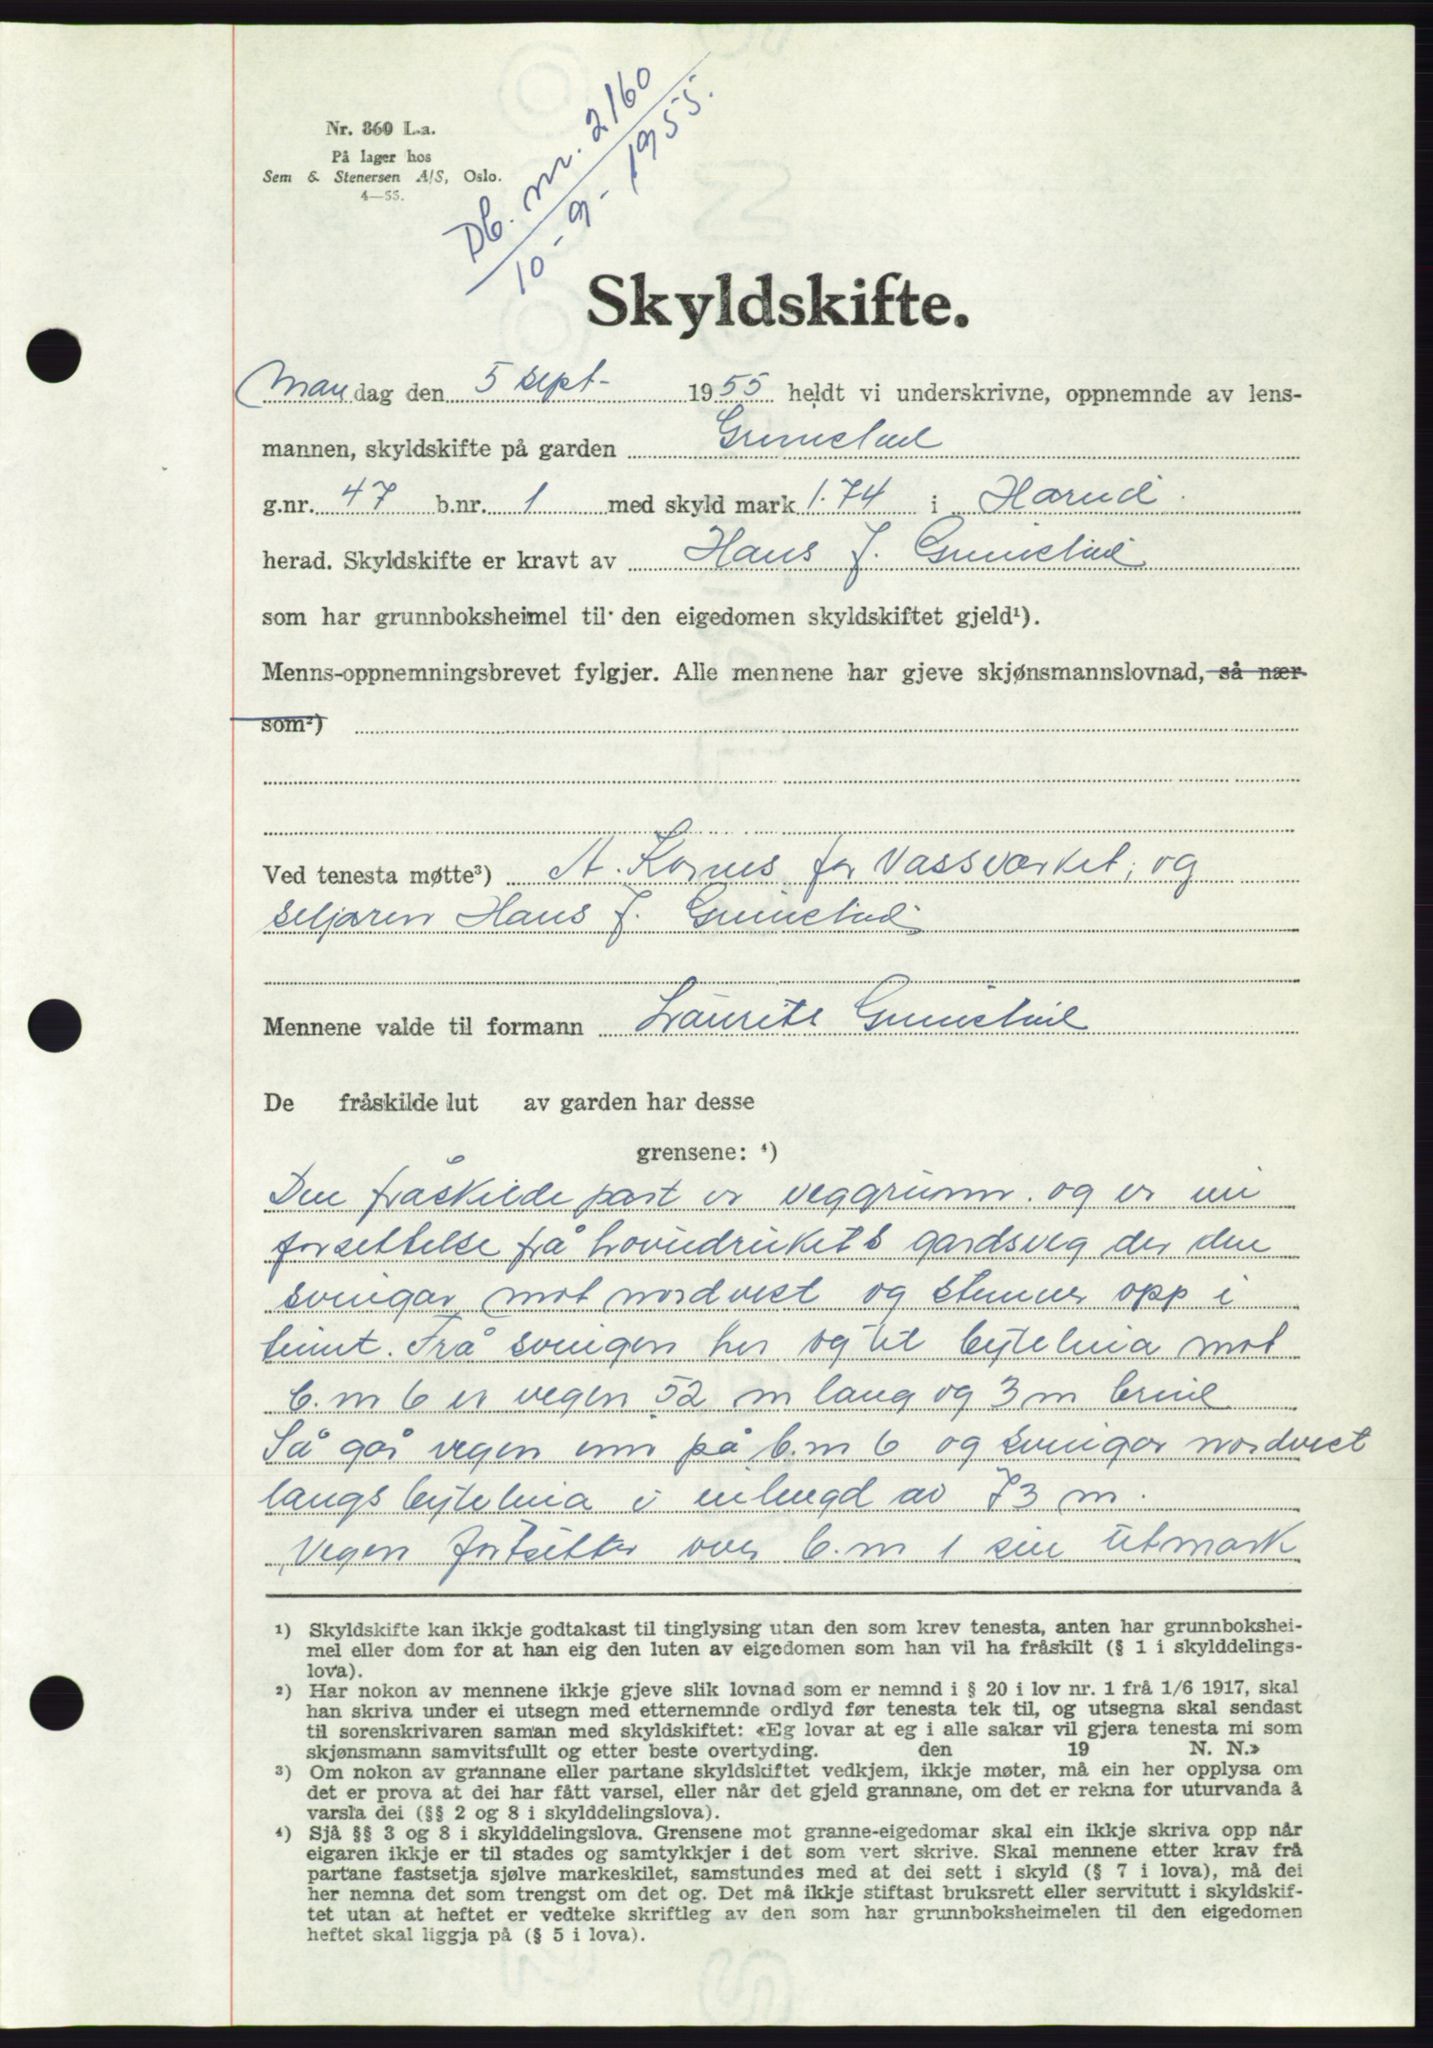 Nr. 860 L.a.
På lager hos
Sem & Stenersen A/S, Oslo.
4—55.
Db. nr. 2160
10-9-1955.
Skyldskifte.
Mandag den 5 sept- 1955 heldt vi underskrivne, oppnemnde av lens-
mannen, skyldskifte på garden Grimstad
g.nr. 47 b.nr. 1 med skyld mark 1.74 i Hareid.
herad. Skyldskifte er kravt av Hans J. Grimstad
som har grunnboksheimel til den eigedomen skyldskiftet gjeld¹).
Menns-oppnemningsbrevet fylgjer. Alle mennene har gjeve skjønsmannslovnad, så nær
som²)
Ved tenesta møtte³) A. for Vassverket; og
seljaren Hans J. Grimstad
Mennene valde til formann Laurits Grimstad
De fråskilde lut av garden har desse
grensene: ⁴)
Den fråskilde part er veggrunn. og er ei
forsettelse frå hovudbrukets gardsveg der den
svingar mot nordvest og stemner opp i
tunet. Frå svingen her og til bytelina mot
b.nr 6 er vegen 52 m lang og 3 m breid
Så går vegen inn på b.nr 6 og svingar nordvest
langs bytelina i ei lengd av 73 m.
Vegen fortsetter over b.nr 1 sin utmark
¹) Skyldskifte kan ikkje godtakast til tinglysing utan den som krev tenesta, anten har grunnbokshei-
mel eller dom for at han eig den luten av eigedomen som han vil ha fråskilt (§ 1 i skylddelings-
lova).
²) Har nokon av mennene ikkje gjeve slik lovnad som er nemnd i § 20 i lov nr. 1 frå 1/6 1917, skal
han skriva under ei utsegn med etternemnde ordlyd før tenesta tek til, og utsegna skal sendast
til sorenskrivaren saman med skyldskiftet: «Eg lovar at eg i alle sakar vil gjera tenesta mi som
skjønsmann samvitsfullt og etter beste overtyding. den 19 N. N.»
³) Om nokon av grannane eller partane skyldskiftet vedkjem, ikkje møter, må ein her opplysa om
det er prova at dei har fått varsel, eller når det gjeld grannane, om det er rekna for uturvanda å
varsla dei (§§ 2 og 8 i skylddelingslova).
⁴) Sjå §§ 3 og 8 i skylddelingslova. Grensene mot granne-eigedomar skal ein ikkje skriva opp når
eigaren ikkje er til stades og samtykkjer i det som vert skrive. Skal mennene etter krav frå
partane fastsetja sjølve markeskilet, samstundes med at dei sett i skyld (§ 7 i lova), må dei
her nemna det som trengst om det og. Det må ikkje stiftast bruksrett eller servitutt i skyldskif-
tet utan at heftet er vedteke skriftleg av den som har grunnboksheimelen til den eigedomen
heftet skal liggja på (§ 5 i lova).